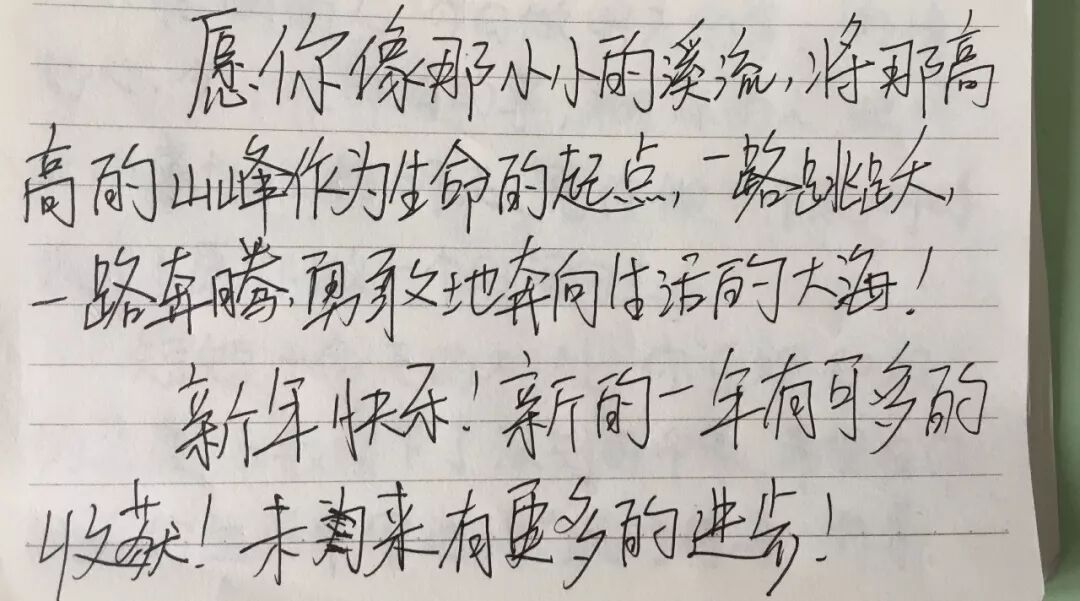 愿你像那小小的溪流,将那高
高的山峰作为生命的起点,一路跳跃,
一路奔腾,勇敢地奔向生活的大海!
新年快乐!新的一年有可多的
收获!未来有更多的进步!